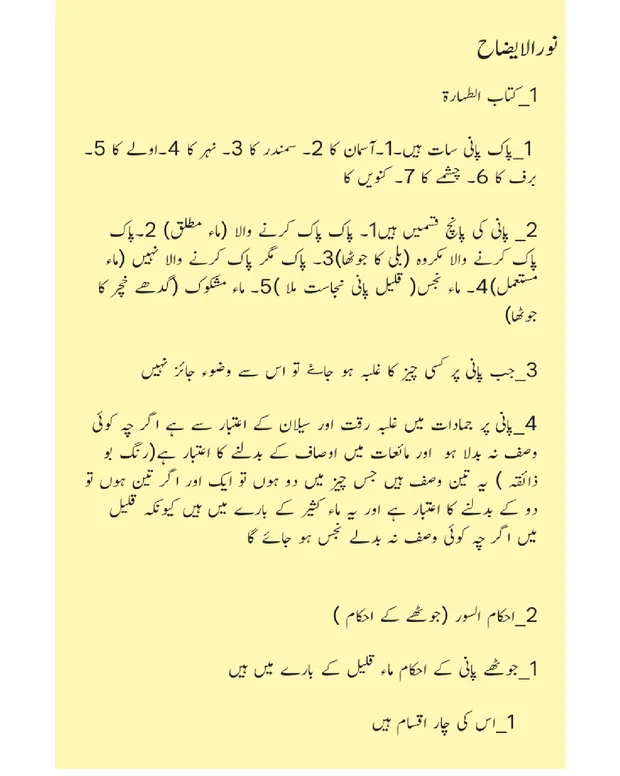 نورالایضاح
1_کتاب الطہارۃ
1_پاک پانی سات ہیں۔1۔آسمان کا 2۔ سمندر کا 3۔ نہر کا 4۔اولے کا 5۔
برف کا 6۔ چشمے کا 7۔ کنویں کا
2_ پانی کی پانچ قسمیں ہیں1۔ پاک پاک کرنے والا (ماء مطلق) 2۔پاک
پاک کرنے والا مکروہ (بلی کا جوٹھا)3۔ پاک مگر پاک کرنے والا نہیں (ماء
مستعمل)4۔ ماء نجس( قلیل پانی نجاست ملا )5۔ ماء مشکوک (گدھے خچر کا
جوٹھا)
3_جب پانی پر کسی چیز کا غلبہ ہو جائے تو اس سے وضوء جائز نہیں
4_پانی پر جمادات میں غلبہ رقت اور سیلان کے اعتبار سے ہے اگر چہ کوئی
وصف نہ بدلا ہو اور مائعات میں اوصاف کے بدلنے کا اعتبار ہے(رنگ بو
ذائقہ ) یہ تین وصف ہیں جس چیز میں دو ہوں تو ایک اور اگر تین ہوں تو
دو کے بدلنے کا اعتبار ہے اور یہ ماء کثیر کے بارے میں ہیں کیونکہ قلیل
میں اگر چہ کوئی وصف نہ بدلے نجس ہو جائے گا
2_احکام السور (جوٹھے کے احکام )
1_جوٹھے پانی کے احکام ماء قلیل کے بارے میں ہیں
1_اس کی چار اقسام ہیں